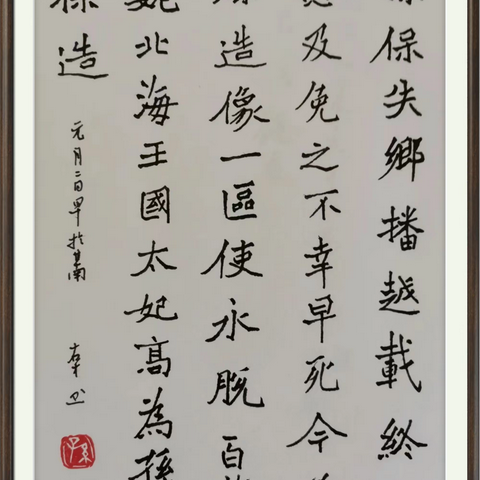 保失鄉播越載終
及免之不幸早死今
造像一區使永脫百
北海王國太妃高為孫
保造
元月二日早於